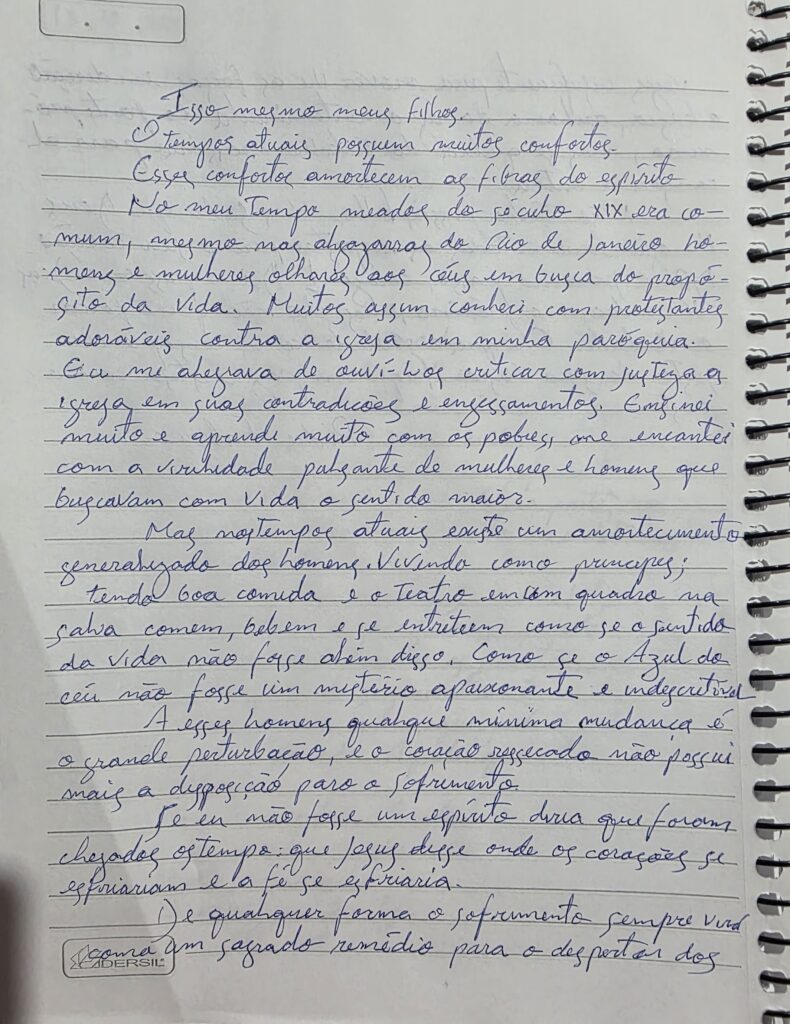 Isso mesmo meus filhos.
O tempos atuais possuem muitos confortos.
Esses confortos amortecem as fibras do espírito
No meu Tempo meados do século XIX era co-
mum, mesmo nas algazarras do Rio de Janeiro ho-
mens e mulheres olhares aos céus em busca do propó-
sito da vida. Muitos assim conheci com protestantes
adoráveis contra a igreja em minha paróquia.
Eu me alegrava de ouví-los criticar com justeza a
igreja em suas contradições e engessamentos. Ensinei
muito e aprendi muito com os pobres, me encantei
com a virilidade pulsante de mulheres e homens que
buscavam com vida o sentido maior.
Mas nos tempos atuais existe um amortecimento
generalizado dos homens. Vivendo como principes;
tendo boa comida e o Teatro em um quadro na
salva comem, bebem e se entretecem como se o sentido
da vida não fosse além disso. Como se o Azul do
céu não fosse um mistério apaixonante e indescritível
A esses homens qualque mínima mudança é
o grande perturbação, e o coração ressecado não possui
mais a disposição para o sofrimento
Se eu não fosse um espírito diria que foram
chegados os tempo: que Jesus disse onde os corações se
esfriariam e a fé se esfriaria.
De qualquer forma o sofrimento sempre virá
como um sagrado remédio para o despertar dos
CADERSIL